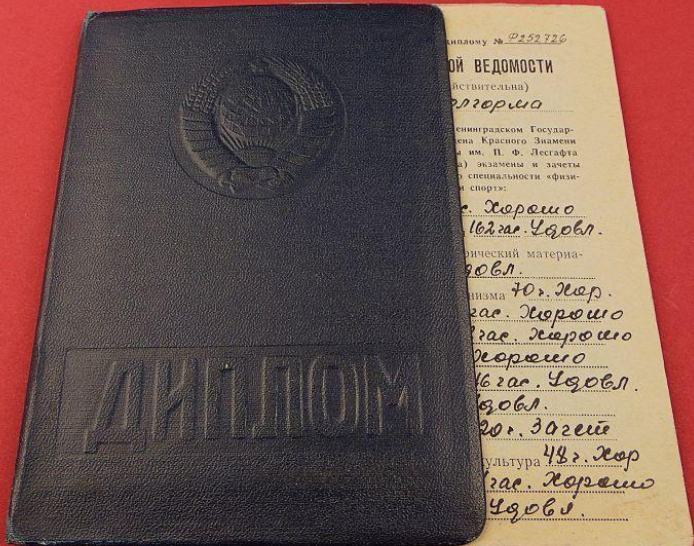 ДИПЛОМ
диплому № Ф252726
ОЙ ВЕДОМОСТИ
йствительна)
елгорма
енинградском Государ-
дена Красного Знамени
ы им. П. Ф. Лесгафта
а) экзамены и зачеты
о специальности «физи-
и спорт»:
с. Хорошо
162 час. Удовл.
орический материа-
довл.
низма 70 ч. Хор.
час. Хорошо
час. Хорошо
Хорошо
16 час. Удовл.
довл.
20 ч. Зачет
ультура 48 ч. Хор
час. Хорошо
Удовл.